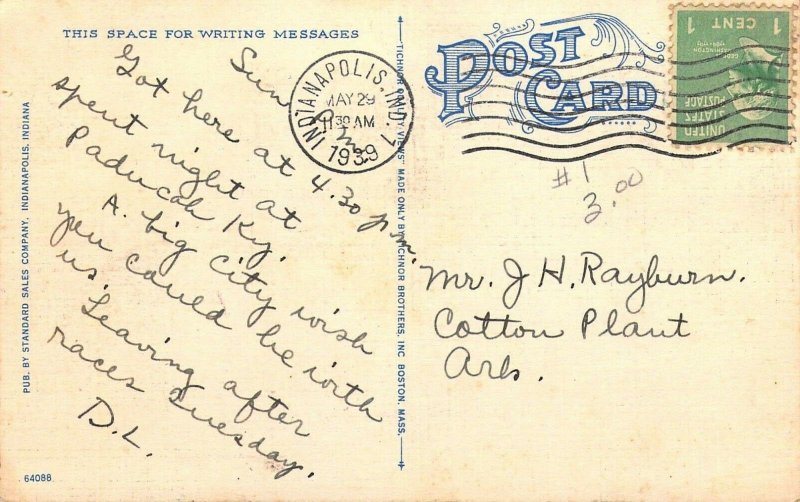 THIS SPACE FOR WRITING MESSAGES
Sun P.m.
Got here at 4.30 p.m.
spent night at
Paducah Ky.
A. big city wish
you could be with
us. Leaving after
races Tuesday.
D.L.
PUB. BY STANDARD SALES COMPANY, INDIANAPOLIS, INDIANA
64088
"TICHNOR QUALITY VIEWS" MADE ONLY BY TICHNOR BROTHERS, INC BOSTON, MASS.
INDIANAPOLIS, IND. 1
MAY 29
11 30 AM
1939
POST CARD
UNITED STATES POSTAGE
GEORGE WASHINGTON
1789-1797
1 CENT 1
#1
3.00
Mr. J H. Rayburn.
Cotton Plant
Ark.